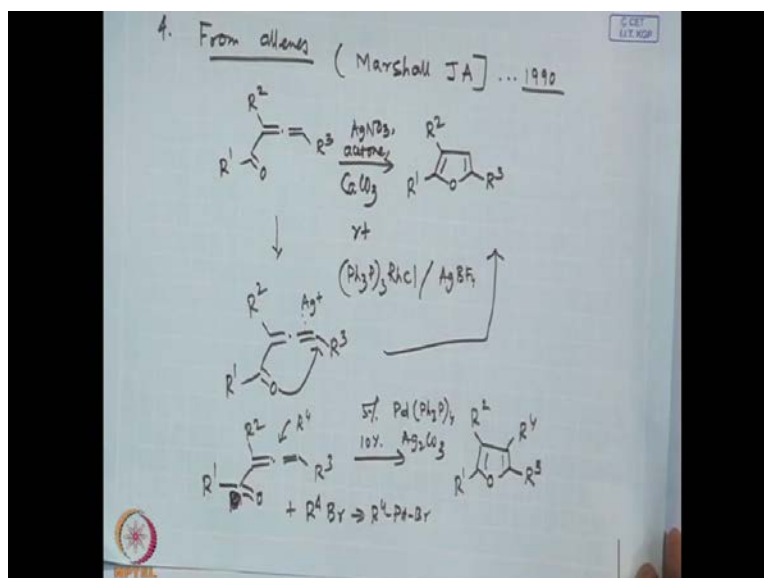 C CET
I.I.T. KGP
4. From allenes ( Marshall JA] ... 1990
R² R³ R¹ O
AgNO3,
acetone,
CaCO3
R² R¹ O R³
rt
(Ph3P)3RhCl / AgBF4
R² Ag+ R³ R¹ O
R² R⁴ R³ R¹ O
5% Pd(Ph3P)4
10% Ag2CO3
R² R⁴ R¹ O R³
+ R⁴ Br → R⁴-Pd-Br
NPTEL